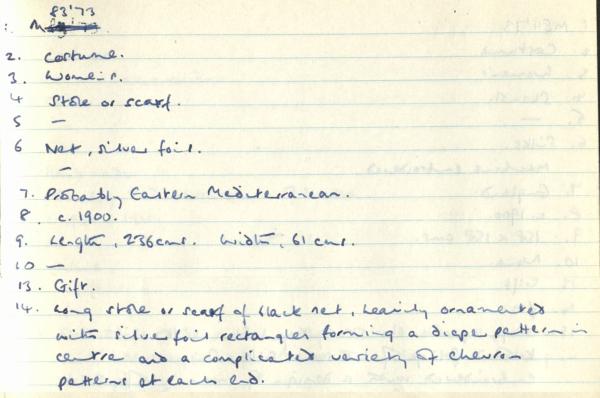 83'73
: M
2. Costume.
3. Women's.
4 Stole or scarf.
5 —
6 Net, silver foil.
—
7. Probably Eastern Mediterranean.
8. c. 1900.
9. Length, 236 cms. Width, 61 cms.
10 —
13. Gift.
14. Long stole or scarf of black net, heavily ornamented
with silver foil rectangles forming a diaper pattern in
centre and a complicated variety of chevron
patterns at each end.